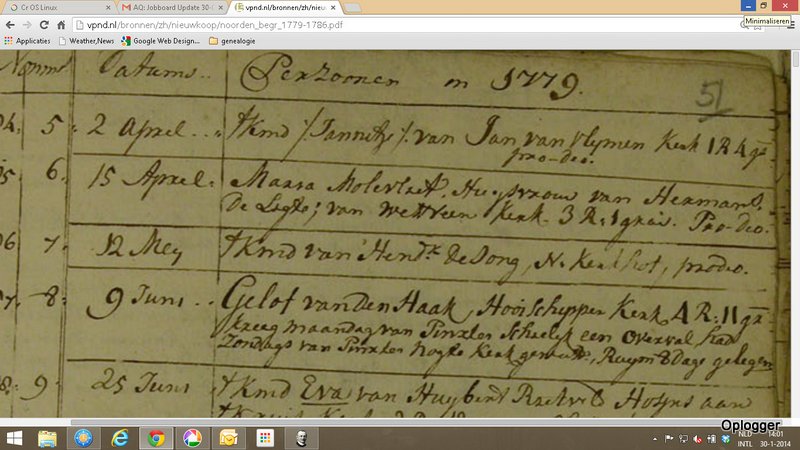 Cr OS Linux
AQ: Jobboard Update 30-
vpnd.nl/bronnen/zh/nieu
vpnd.nl/bronnen/zh/nieuwkoop/noorden_begr_1779-1786.pdf
Minimaliseren
Applicaties Weather,News Google Web Design... genealogie
Datums Perzoonen in 1779.
51
5 2 April t kind /: Jannetje :/ van Jan van Vlymen Kerk 1 R 4 gr
pro-deo.
6. 15 April Maria Molevliet, Huysvrouw van Hermanus
De Ligte; van Kerk 3 R: 1 Pro-Deo.
7. 12 Mey t kind van Hendk De Jong, N. Kerkhof, prodeo.
8. 9 Juni Gelof van Den Haak, Hooischipper Kerk 4 R: 11
kreeg maandag van Pinxter Schielyk een overval, had
Zondags van Pinxter nogte Kerk geweest, Ruym 8 Dage gelegen
9 25 Juni t kind Eva van Huybert
Oplogger
NLD 14:01
INTL 30-1-2014